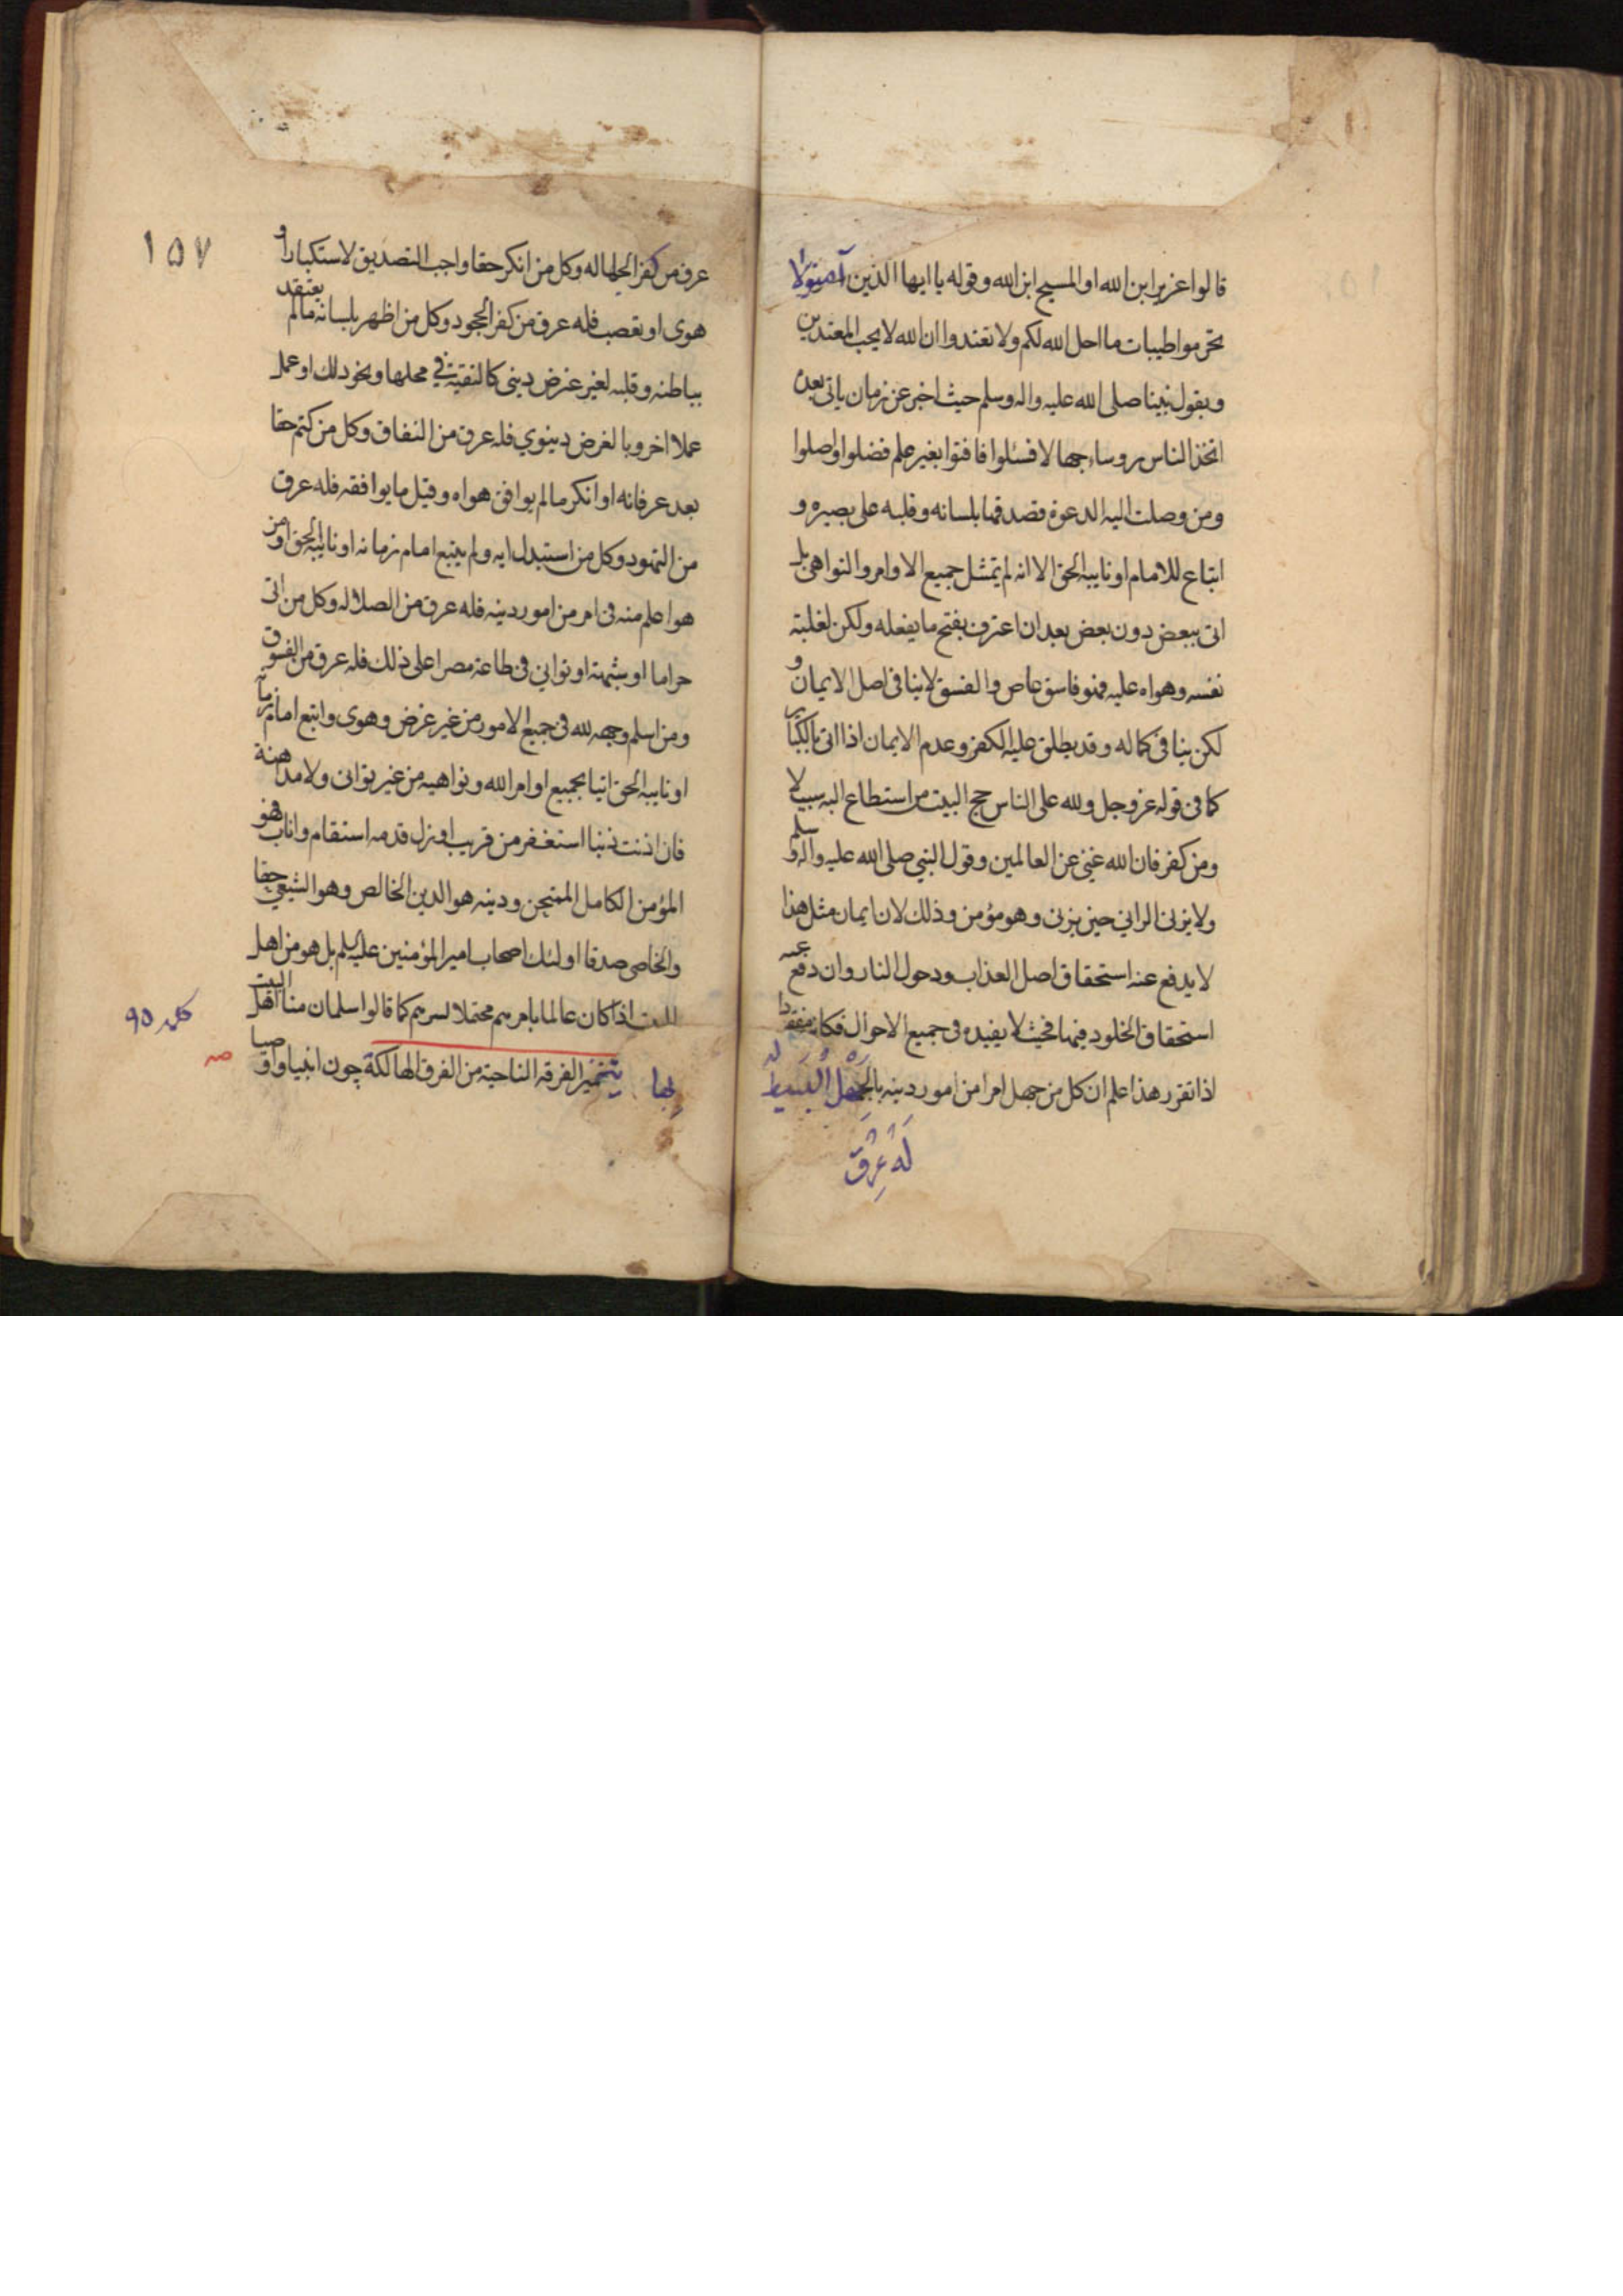 قالوا عزير ابن الله او المسيح ابن الله وقوله يا ايها الذين آمنوا لا
تحرموا طيبات ما احل الله لكم ولا تعتدوا ان الله لا يحب المعتدين
وبقول نبينا صلى الله عليه واله وسلم حيث اخبر عن زمان ياتى بعده
اتخذ الناس روساء جهالا فسئلوا فافتوا بغير علم فضلوا واضلوا
ومن وصلت اليه الدعوة فصدقها بلسانه وقلبه على بصيرة و
اتباع للامام او نايبه الحق الا انه لم يمتثل جميع الاوامر والنواهى بل
اتى ببعض دون بعض بعد ان اعترف بقبح ما يفعله ولكن لغلبة
نفسه وهواه عليه فهو فاسق عاص والفسق لا ينافى اصل الايمان و
لكن ينافى كماله وقد يطلق عليه الكفر وعدم الايمان اذا اتى بالكبائر
كما فى قوله عز وجل ولله على الناس حج البيت من استطاع اليه سبيلا
ومن كفر فان الله غنى عن العالمين وقول النبي صلى الله عليه واله وسلم
ولا يزنى الزاني حين يزنى وهو مؤمن وذلك لان ايمان مثل هذا
لا يدفع عنه استحقاق اصل العذاب ودخول النار وان دفع عنه
استحقاق الخلود فيها فحيث لا يفيده فى جميع الاحوال فكانه مفقود
اذا تقرر هذا علم ان كل من جهل امرا من امور دينه بالجهل البسيط
له عرق
١٥٧
عرق من كفر الجهالة وكل من انكر حقا واجب التصديق لاستكبار او
هوى او تعصب فله عرق من كفر الجحود وكل من اظهر بلسانه ما لم يعتقد
بباطنه وقلبه لغير غرض دينى كالتقية في محلها ونحو ذلك او عمل
عملا اخرويا لغرض دينوي فله عرق من النفاق وكل من كتم حقا
بعد عرفانه او انكر ما لم يوافق هواه وقبل ما يوافقه فله عرق
من التهود وكل من استبد برايه ولم يتبع امام زمانه او نايبه الحق او من
هو اعلم منه فى امر من امور دينه فله عرق من الضلالة وكل من اتى
حراما او شبهة او توانى فى طاعة مصرا على ذلك فله عرق من الفسوق
ومن اسلم وجهه لله فى جميع الامور من غير غرض وهوى واتبع امام زمانه
او نايبه الحق اتيا بجميع اوامر الله ونواهيه من غير توانى ولا مداهنة
فان اذنب ذنبا استغفر من قريب او زل قدمه استقام واناب فهو
المؤمن الكامل الممتحن ودينه هو الدين الخالص وهو الشيعي حقا
والخاصى صدقا اولئك اصحاب امير المؤمنين عليه السلم بل هو من اهل
البيت اذا كان عالما بامرهم محتملا لسرهم كما قالوا سلمان منا اهل البيت
بها يتميز الفرقة الناجية من الفرق الهالكة چون انبيا و اوصيا
كلمه ٩٥